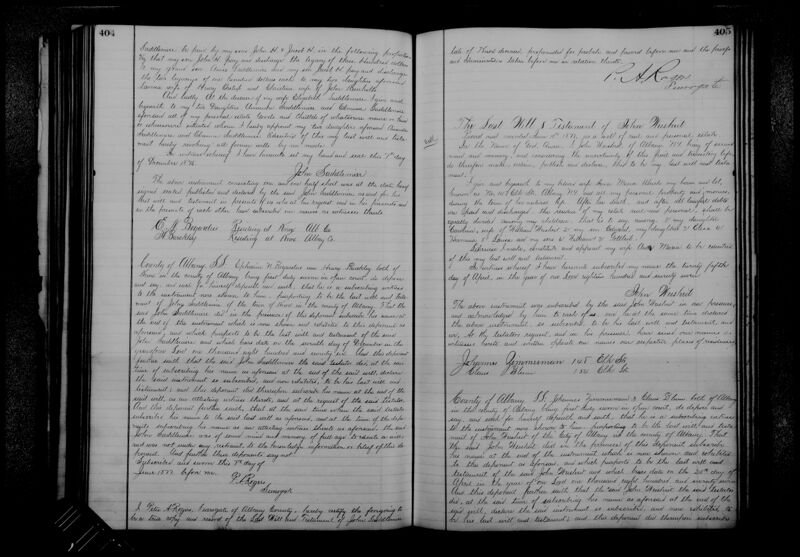 404
Saddlemire be paid by my sons John H. & Jacob H. in the following proportion
Viz that my son John H. pay and discharge the legacy of three hundred dollars
to my grand son and my son Jacob H. pay and discharge
the two legacies of one hundred dollars each to my two daughters aforesaid
Lavina wife of Henry and Christina wife of John
And lastly at the decease of my wife Elizabeth Saddlemire I give and
bequeath to my two Daughters Saddlemire and Saddlemire
aforesaid all of my personal estate Goods and Chattels of whatsoever name or kind
or wheresoever situated whom I hereby appoint my two daughters aforesaid
Saddlemire and Saddlemire Executrixes of this my last will and testa-
ment hereby revoking all former wills by me made.
In witness whereof I have hereunto set my hand and seal this 7th day
of December 1876.
John Saddlemire
The above instrument consisting of one and one half sheet was at the date thereof
signed sealed published and declared by the said John Saddlemire as and for his
last will and testament in presents of us who at his request and in his presents and
in the presents of each other have subscribed our names as witnesses thereto
Residing at Knox Alb Co.
Residing at Knox Albany Co.
County of Albany SS. and Henry both of
Knox in the county of Albany being first duly sworn in open court, do depose
and say, and each for himself deposes and saith, that he is a subscribing witness
to the instrument now shown to him, purporting to be the last will and testa-
ment of John Saddlemire of the town of Knox in the county of Albany. That the
said John Saddlemire did in the presence of this deponent subscribe his name at
the end of the instrument which is now shown and exhibited to this deponent as
aforesaid, and which purports to be the last will and testament of the said
John Saddlemire and which bears date on the seventh day of December in the
year of our Lord one thousand eight hundred and seventy six. And this deponent
further saith that the said John Saddlemire the said testator did, at the said
time of subscribing his name as aforesaid at the end of the said will, declare
the said instrument so subscribed, and now exhibited, to be his last will and
testament; and this deponent did thereupon subscribe his name at the end of the
said will, as an attesting witness thereto, and at the request of the said testator.
And this deponent further saith, that at the said time when the said testator
subscribed his name to the said last will as aforesaid, and at the time of the depo-
nents subscribing his name as an attesting witness thereto as aforesaid, the said
John Saddlemire was of sound mind and memory, of full age to execute a will,
and was not under any restraint, to the knowledge, information or belief of this de-
ponent. And further these deponents say not.
Subscribed and sworn this 7th day of
June 1877 before me.
P. A. Rogers
Surrogate
I Peter A. Rogers, Surrogate of Albany County, hereby certify the foregoing to
be a true copy and record of the Last Will and Testament of John Saddlemire
405
late of Knox deceased, propounded for probate and proved before me and the proofs
and examinations taken before me in relation thereto.
P. A. Rogers
Surrogate
The Last Will & Testament of John
Proved and recorded June 1877, as a will of real and personal estate.
In the Name of God, Amen. I John of Albany N.Y. being of sound
mind and memory, and considering the uncertainty of this frail and transitory life
do therefore make, ordain, publish and declare, this to be my last will and testa-
ment.
I give and bequeath to my beloved wife Anna Maria my house and lot,
known as No Elk Str. Albany N.Y. and all my personal property and moneys
during the term of her natural life. After her death and after all lawful debts
are paid and discharged the residue of my estate real and personal, shall be
equally divided among my children that is to say among my daughter
Caroline, wife of William & my son Edward, my daughter & Eliza &
& Louisa and my sons & William & Gottlieb.
Likewise I make, constitute and appoint my wife Anna Maria to be executrix
of this my last will and testament.
In witness whereof I have hereunto subscribed my name the twenty fifth
day of April, in the year of our Lord eighteen hundred and seventy seven
John
The above instrument was subscribed by the said John in our presence
and acknowledged by him to each of us and he at the same time declared
the above instrument so subscribed to be his last will and testament, and
we, at the testators request and in his presence have signed our names as
witnesses hereto and written opposite our names our respective places of residence
Johannes Zimmermann Elk St.
Elk St.
County of Albany SS. Johannes Zimmermann & both of Albany
in the county of Albany being first duly sworn in open court, do depose and
say, and each for himself deposes and saith, that he is a subscribing witness
to the instrument now shown to him, purporting to be the last will and testa-
ment of John of the City of Albany in the county of Albany. That
the said John did in the presence of this deponent subscribe
his name at the end of the instrument which is now shown and exhibited
to this deponent as aforesaid, and which purports to be the last will and
testament of the said John and which bears date on the 25th day of
April in the year of our Lord one thousand eight hundred and seventy seven
And this deponent further saith that the said John the said testator
did, at the said time of subscribing his name as aforesaid at the end of the
said will, declare the said instrument so subscribed, and now exhibited to
be his last will and testament; and this deponent did thereupon subscribe